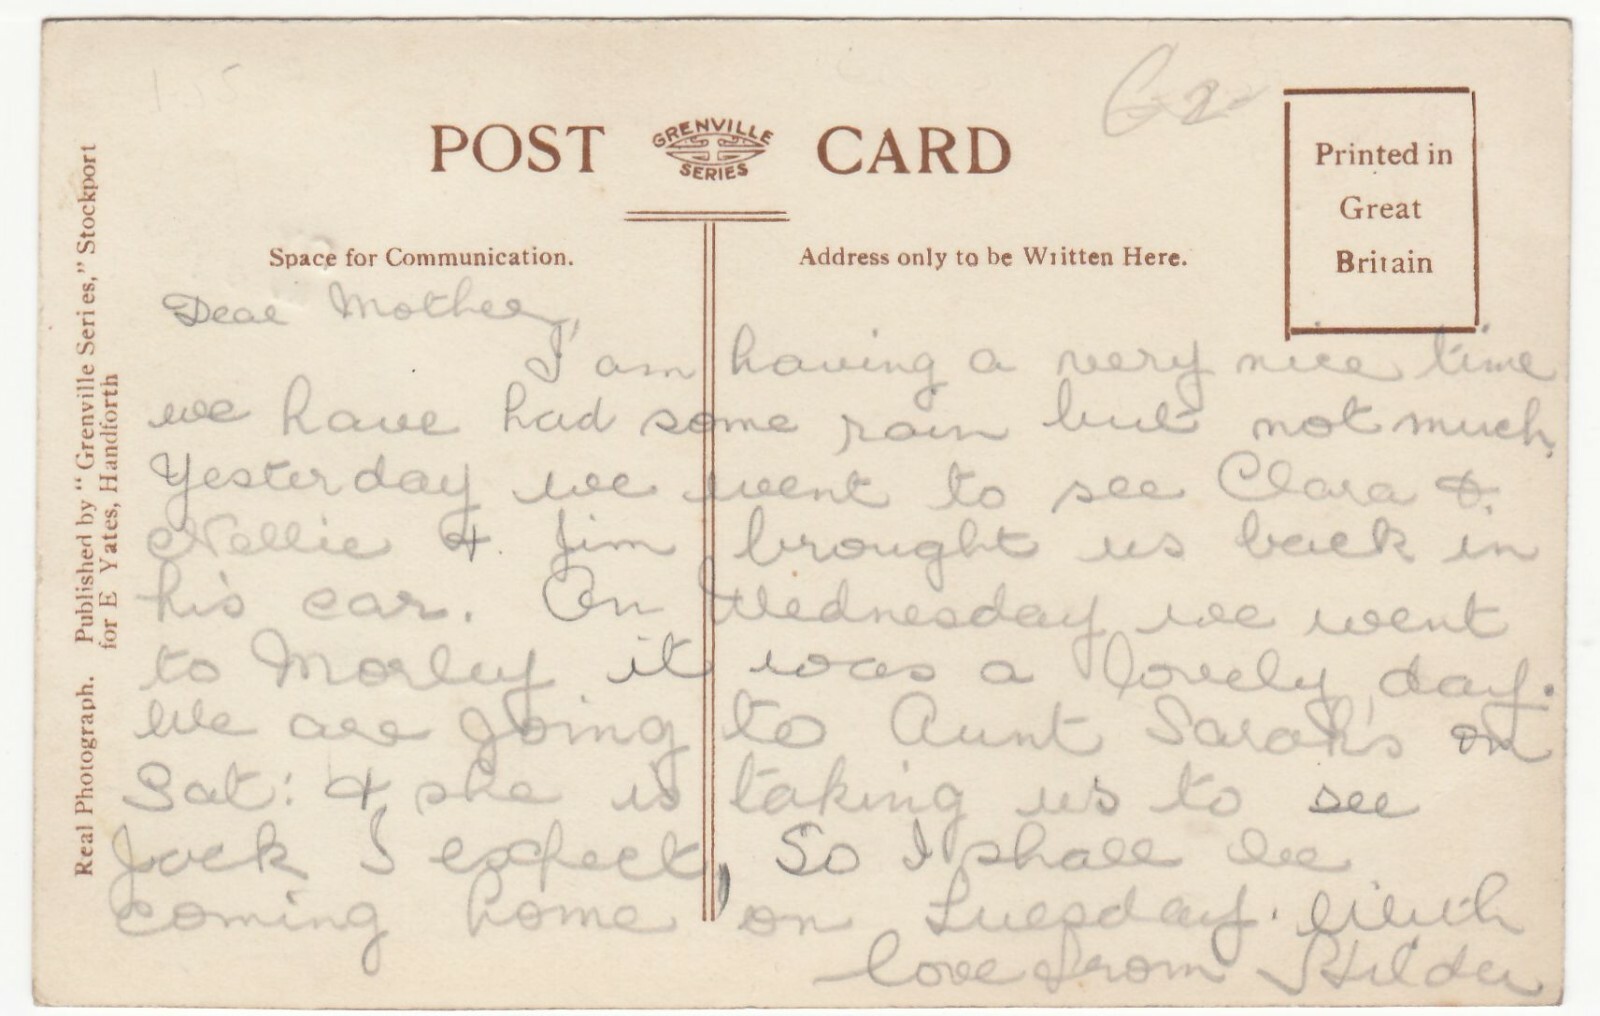 1-55
G2-
POST CARD
GRENVILLE
SERIES
Printed in
Great
Britain
Space for Communication.
Address only to be Written Here.
Real Photograph. Published by "Grenville Series," Stockport
for E Yates, Handforth
Dear Mother,
I am having a very nice time
we have had some rain but not much,
Yesterday we went to see Clara &
Nellie & Jim brought us back in
his car. On Wednesday we went
to Morley it was a lovely day.
We are going to Aunt Sarah's on
Sat: & she is taking us to see
Jack I expect, So I shall be
coming home on Tuesday. With
love from Hilda